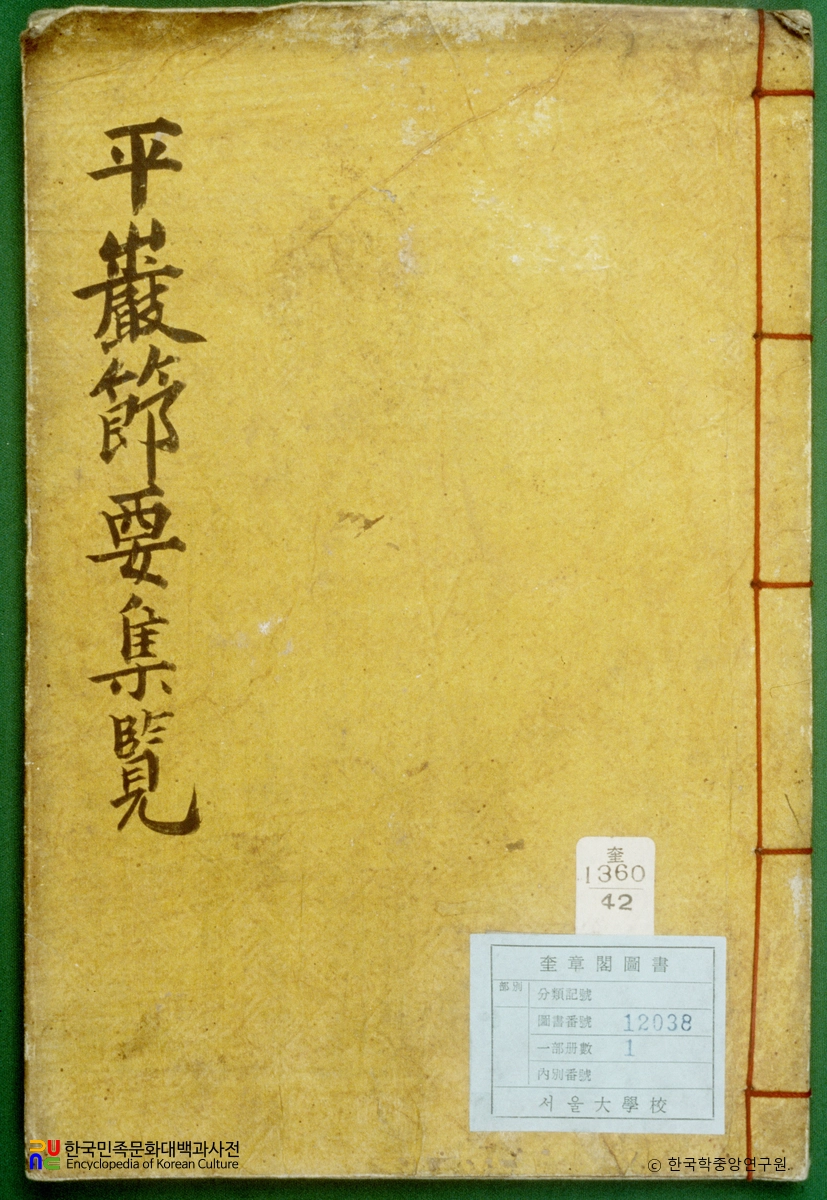 平巖節要集覽
奎
1360
42
奎章閣圖書
部別
分類記號
圖書番號 12038
一部册數 1
內別番號
서울大學校
한국민족문화대백과사전
Encyclopedia of Korean Culture
© 한국학중앙연구원